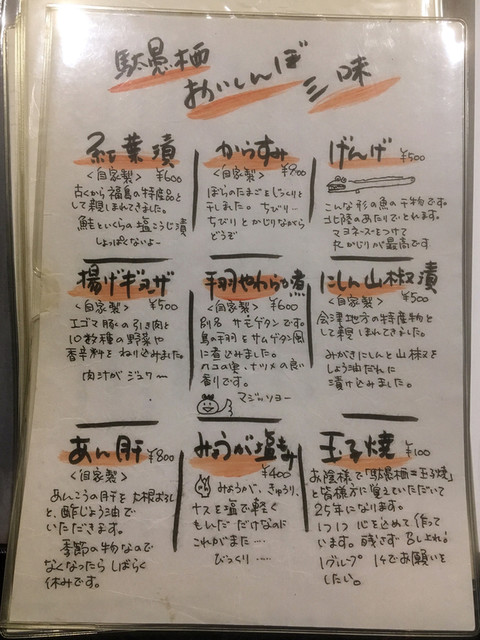 駄愚栖
おいしんぼ
三味
紅葉漬
〈自家製〉 ¥600
古くから福島の特産品と
して親しまれてきました。
鮭といくらの塩こうじ漬
しょっぱくないよー
からすみ
〈自家製〉 ¥900
ぼらのたまごをじっくりと
干しました。ちびり…
ちびりとかじりながら
どうぞ
げんげ ¥500
こんな形の魚の干物です。
北陸のあたりでとれます。
マヨネーズをつけて
丸かじりが最高です
揚げギョーザ
〈自家製〉 ¥500
エゴマ豚の引き肉と
10数種の野菜や
香辛料をねり込みました。
肉汁がジュワ〜
手羽やわらか煮
〈自家製〉 ¥600
別名 サモゲタンです。
鳥の手羽をサムゲタン風
に煮込みました。
ナツメの良い
香りです。
マジッソヨー
にしん山椒漬
〈自家製〉 ¥500
会津地方の特産物と
して親しまれてきました。
みがきにしんと山椒を
しょう油だれに
漬け込みました。
あん肝 ¥800
〈自家製〉
あんこうの肝を大根おろし
と、酢じょう油で
いただきます。
季節の物なので
なくなったらしばらく
休みです。
みょうが塩もみ
¥400
みょうが、きゅうり、
ナスを塩で軽く
もんだだけなのに
これがまた……
びっくり……
玉子焼 ¥100
お陰様で「駄愚栖=玉子焼」
と皆様方に覚えていただいて
25年になります。
1つ1つ心を込めて作って
います。残さず召し上れ!
1グループ 1ケでお願いを
したい。